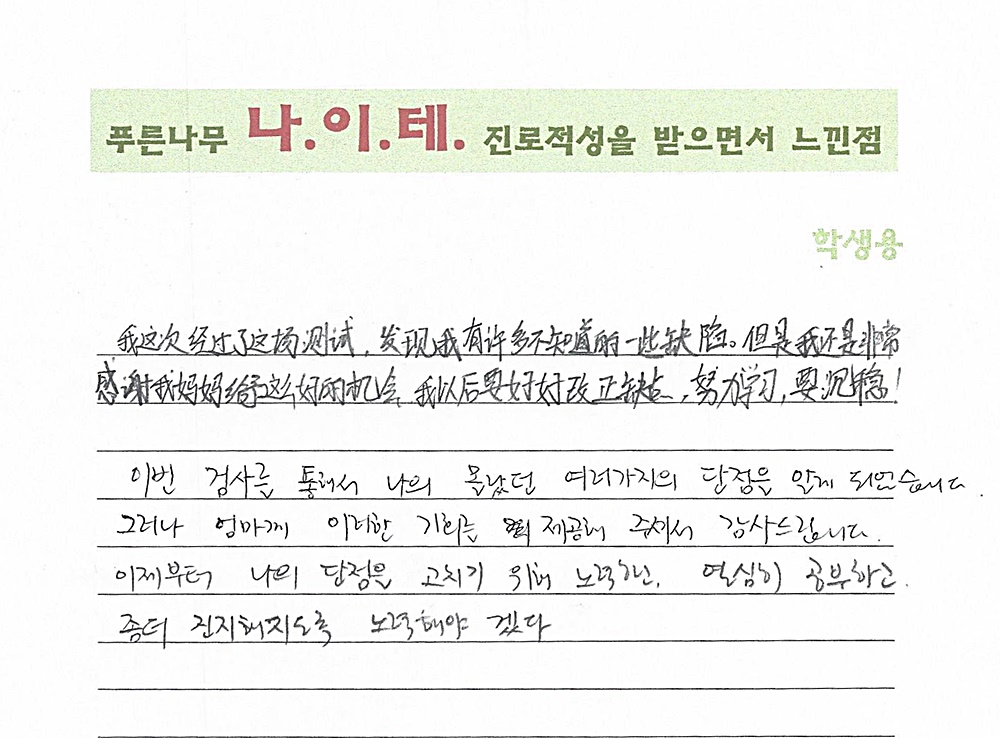 푸른나무 나.이.테. 진로적성을 받으면서 느낀점
학생용
我这次经过了这场测试，发现我有许多不知道的一些缺陷。但是我还是非常
感谢我妈妈给这么好的机会，我以后要好好改正缺点，努力学习，要沉稳！
이번 검사를 통해서 나의 몰랐던 여러가지의 단점을 알게 되었습니다.
그러나 엄마께 이러한 기회를 제공해 주셔서 감사드립니다.
이제부터 나의 단점을 고치기 위해 노력하면, 열심히 공부하고
좀더 진지해지도록 노력해야 겠다